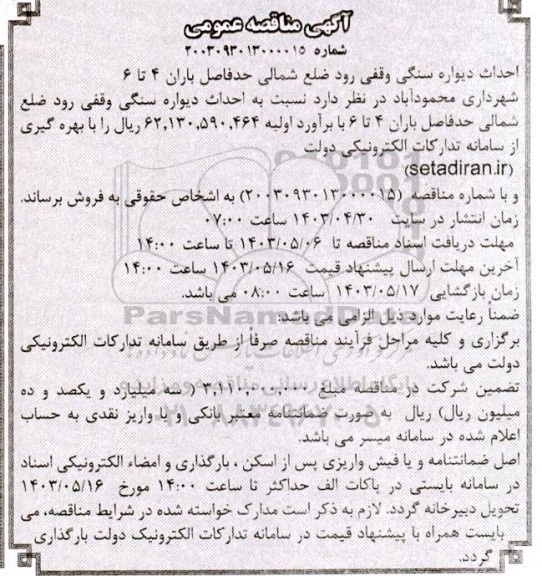 آگهی مناقصه عمومی
شماره ۲۰۰۳۰۹۳۰۱۳۰۰۰۰۱۵
احداث دیواره سنگی وقفی رود ضلع شمالی حدفاصل باران ۴ تا ۶
شهرداری محمودآباد در نظر دارد نسبت به احداث دیواره سنگی وقفی رود ضلع
شمالی حدفاصل باران ۴ تا ۶ با برآورد اولیه ۶۲,۱۳۰,۵۹۰,۴۶۴ ریال را با بهره گیری
از سامانه تدارکات الکترونیکی دولت
(setadiran.ir)
و با شماره مناقصه (۲۰۰۳۰۹۳۰۱۳۰۰۰۰۱۵) به اشخاص حقوقی به فروش برساند.
زمان انتشار در سایت ۱۴۰۳/۰۴/۳۰ ساعت ۰۷:۰۰
مهلت دریافت اسناد مناقصه تا ۱۴۰۳/۰۵/۰۶ تا ساعت ۱۴:۰۰
آخرین مهلت ارسال پیشنهاد قیمت ۱۴۰۳/۰۵/۱۶ ساعت ۱۴:۰۰
زمان بازگشایی ۱۴۰۳/۰۵/۱۷ ساعت ۰۸:۰۰ می باشد.
ضمنا رعایت موارد ذیل الزامی می باشد:
برگزاری و کلیه مراحل فرآیند مناقصه صرفاً از طریق سامانه تدارکات الکترونیکی
دولت می باشد.
تضمین شرکت در مناقصه مبلغ ۳,۱۱۰,۰۰۰,۰۰۰ ( سه میلیارد و یکصد و ده
میلیون ریال) ریال به صورت ضمانتنامه معتبر بانکی و یا واریز نقدی به حساب
اعلام شده در سامانه میسر می باشد.
اصل ضمانتنامه و یا فیش واریزی پس از اسکن ، بارگذاری و امضاء الکترونیکی اسناد
در سامانه بایستی در پاکات الف حداکثر تا ساعت ۱۴:۰۰ مورخ ۱۴۰۳/۰۵/۱۶
تحویل دبیرخانه گردد. لازم به ذکر است مدارک خواسته شده در شرایط مناقصه، می
بایست همراه با پیشنهاد قیمت در سامانه تدارکات الکترونیک دولت بارگذاری
گردد.
ParsNamadData